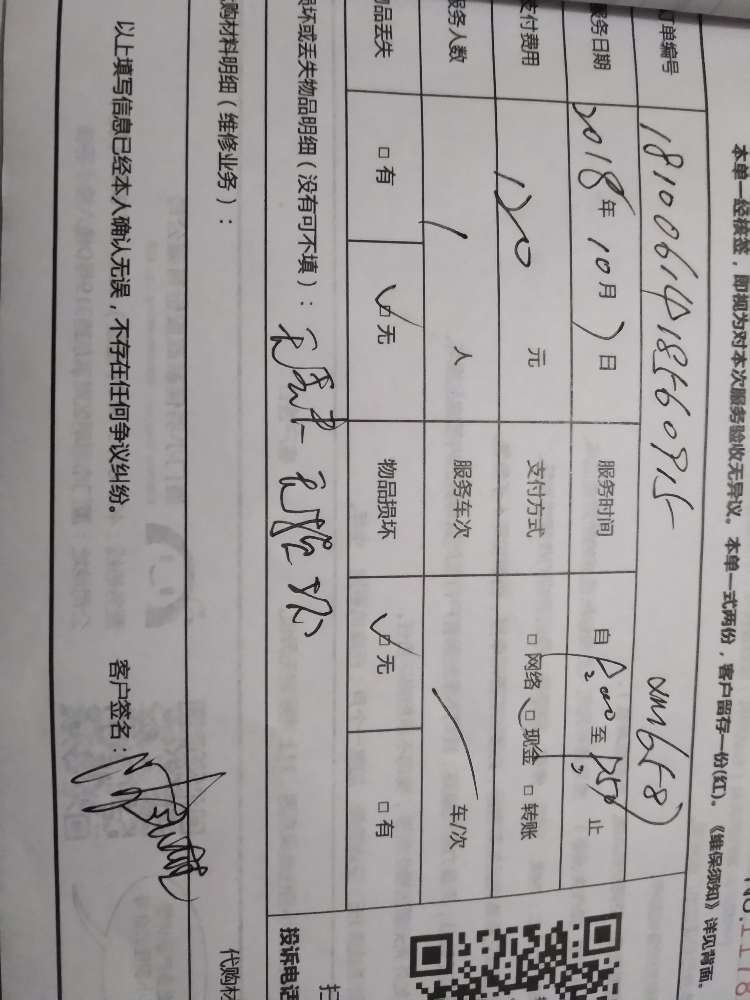 本单一经核签，即视为对本次服务验收无异议。本单一式两份，客户留存一份(红)。《维保须知》详见背面。
订单编号
服务日期 2018年10月7日 服务时间 自 至 止
支付费用 120元 支付方式 □网络 □现金 □转账
服务人数 1 人 服务车次 车/次
物品丢失 □有 ✓□无 物品损坏 ✓□无 □有
损坏或丢失物品明细（没有可不填）：无丢失 无损坏
代购材料明细（维修业务）： 代购材
投诉电话
以上填写信息已经本人确认无误，不存在任何争议纠纷。 客户签名：